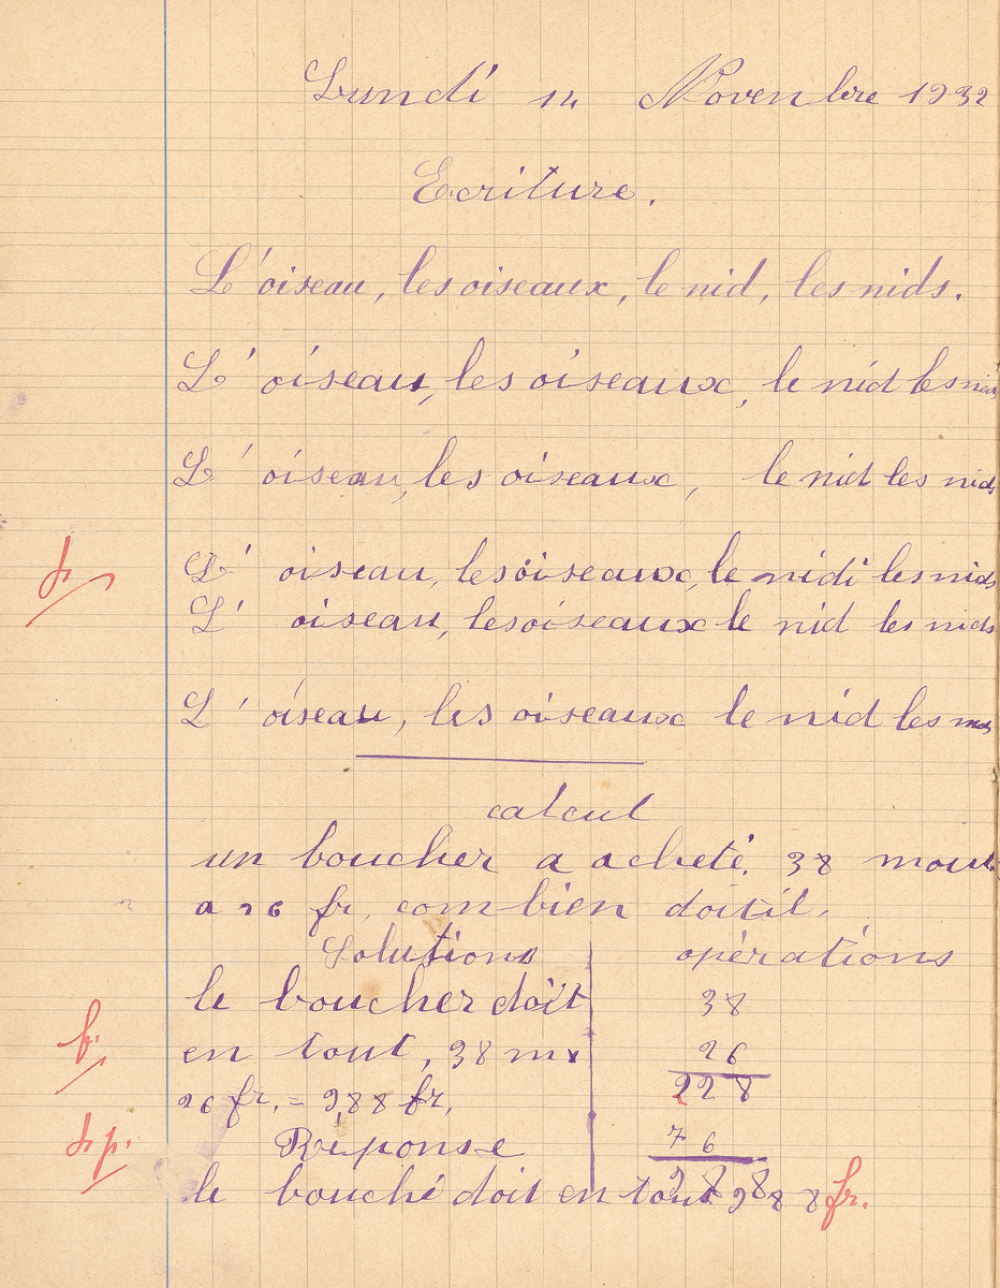 Lundi 14 Novenbre 1932
Ecriture.
L'oiseau, les oiseaux, le nid, les nids.
L'oiseau, les oiseaux, le nid les nids
L'oiseau, les oiseaux, le nid les nids
L'oiseau, les oiseaux, le nidi les nids
L'oiseau, les oiseaux le nid les nids
L'oiseau, les oiseaux le nid les nids
calcul
un boucher a acheté. 38 mout.
a 26 fr. combien doitil.
Solutions
le boucher doit
en tout, 38 m x
26 fr. = 988 fr.
Réponse
opérations
38
26
228
76
988
le bouché doit en tout 988 fr.